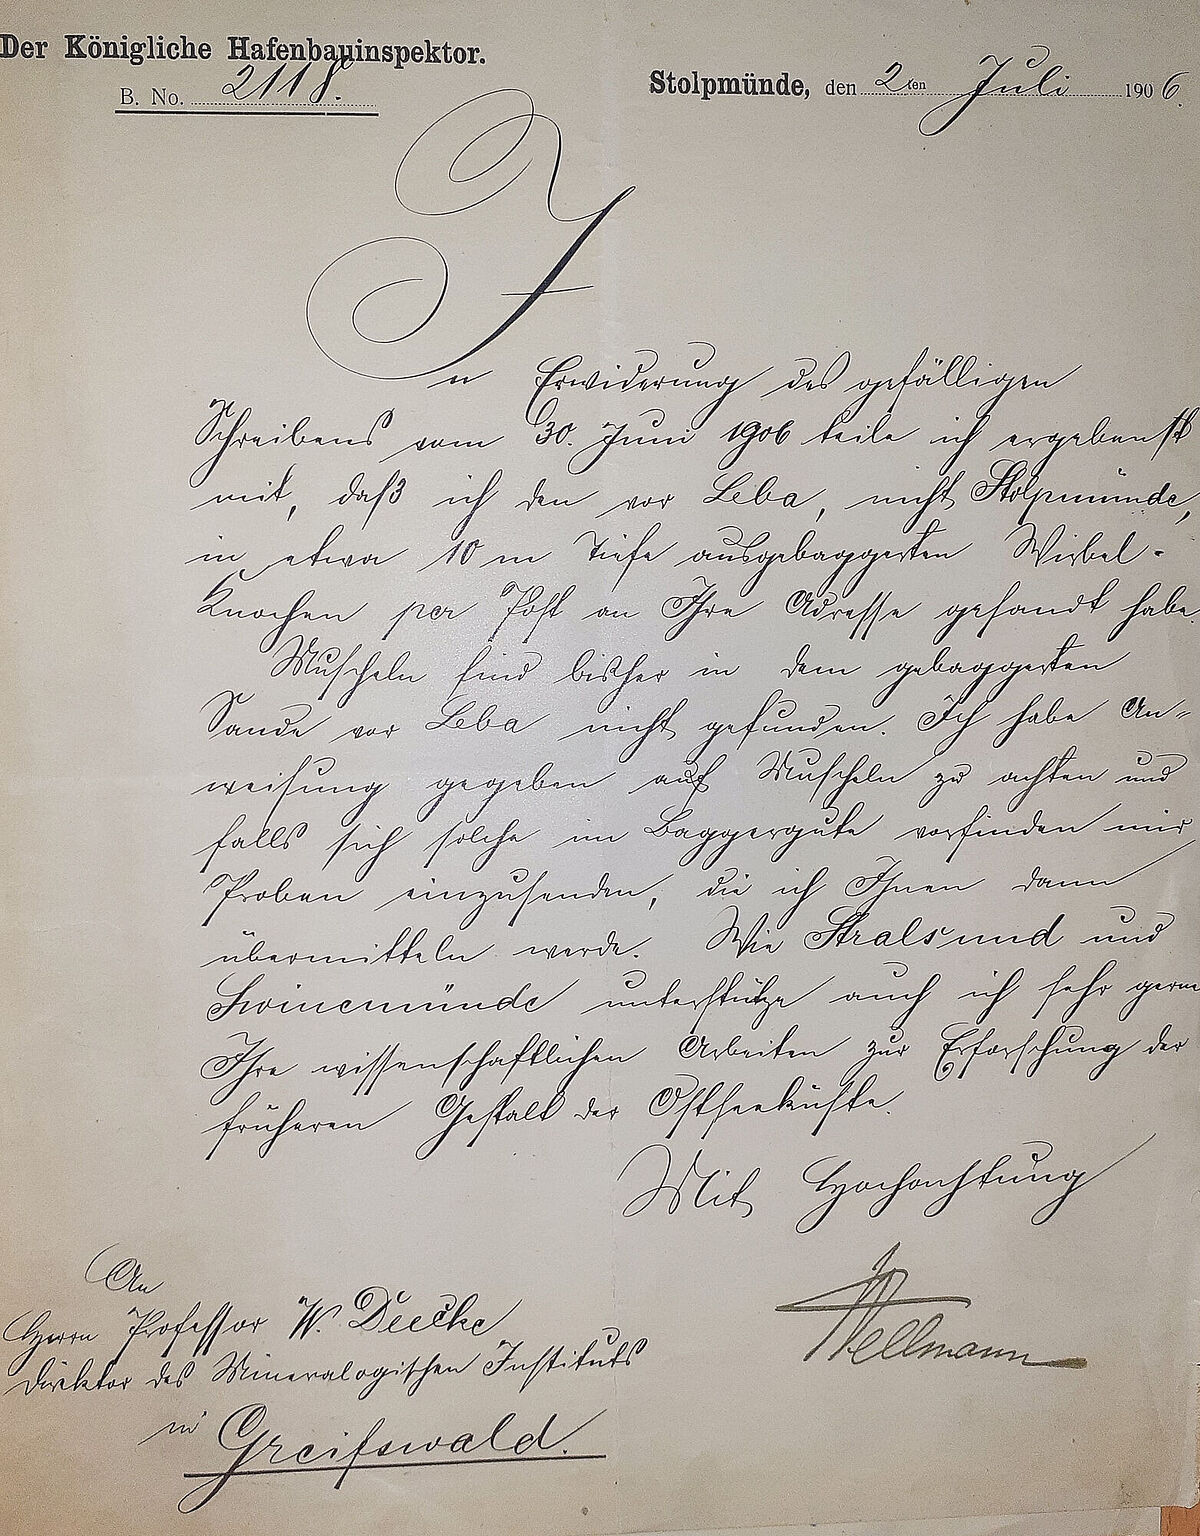 Der Königliche Hafenbauinspektor.
B. No. 2118.
Stolpmünde, den 2ten Juli 1906.
In Erwiderung des gefälligen
Schreibens vom 30. Juni 1906 teile ich ergebenst
mit, daß ich den vor Leba, nicht Stolpmünde,
in etwa 10 m Tiefe ausgebaggerten Wirbel-
Knochen per Post an Ihre Adresse gesandt habe.
Muscheln sind bisher in dem gebaggerten
Sande vor Leba nicht gefunden. Ich habe An-
weisung gegeben auf Muscheln zu achten und
falls sich solche im Baggergute vorfinden mir
Proben einzusenden, die ich Ihnen dann
übermitteln werde. Wie Stralsund und
Swinemünde unterstütze auch ich sehr gern
Ihre wissenschaftlichen Arbeiten zur Erforschung der
früheren Gestalt der Ostseeküste.
Mit Hochachtung
Wellmann
An
Herrn Professor W. Deecke
Direktor des Mineralogischen Instituts
in Greifswald.